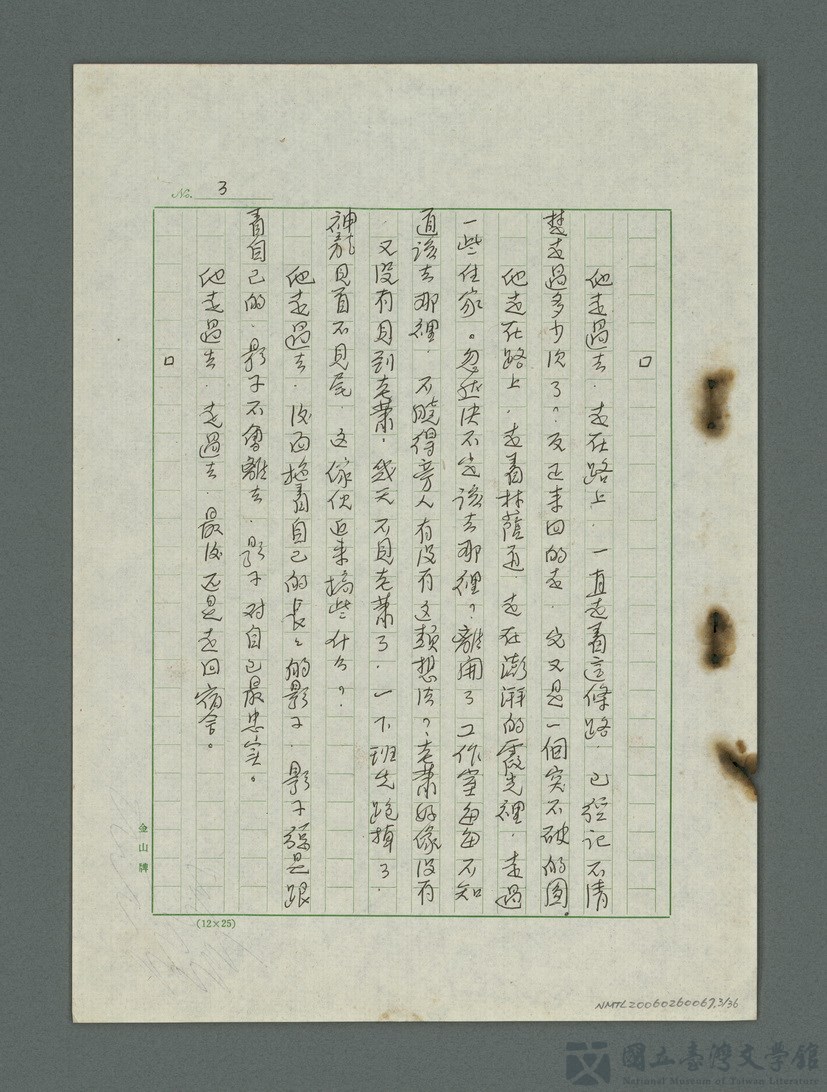 No. 3
□
他走過去．走在路上．一直走着這條路．已經记不清
楚走過多少次了？反正来回的走．它又是一個突不破的圆．
他走在路上．走着林蔭道．走在澎湃的霞光裡．走過
一些住家。忽然决不定該去那裡？離開了工作室每每不知
道該去那裡．不曉得旁人有没有这類想法？老萧好像没有
又没有見到老萧．幾天不見老萧了．一下班先跑掉了．
神龍見首不見尾．这傢伙近来搞些什么？
他走過去．後面拖着自己的長々的影子．影子總是跟
着自己的．影子不會離去．影子对自己最忠实。
他走過去．走過去．最後还是走回宿舍。
□
金山牌
(12×25)
NMTL20060260067.3/36
國立臺灣文學館
National Museum of Taiwan Literature